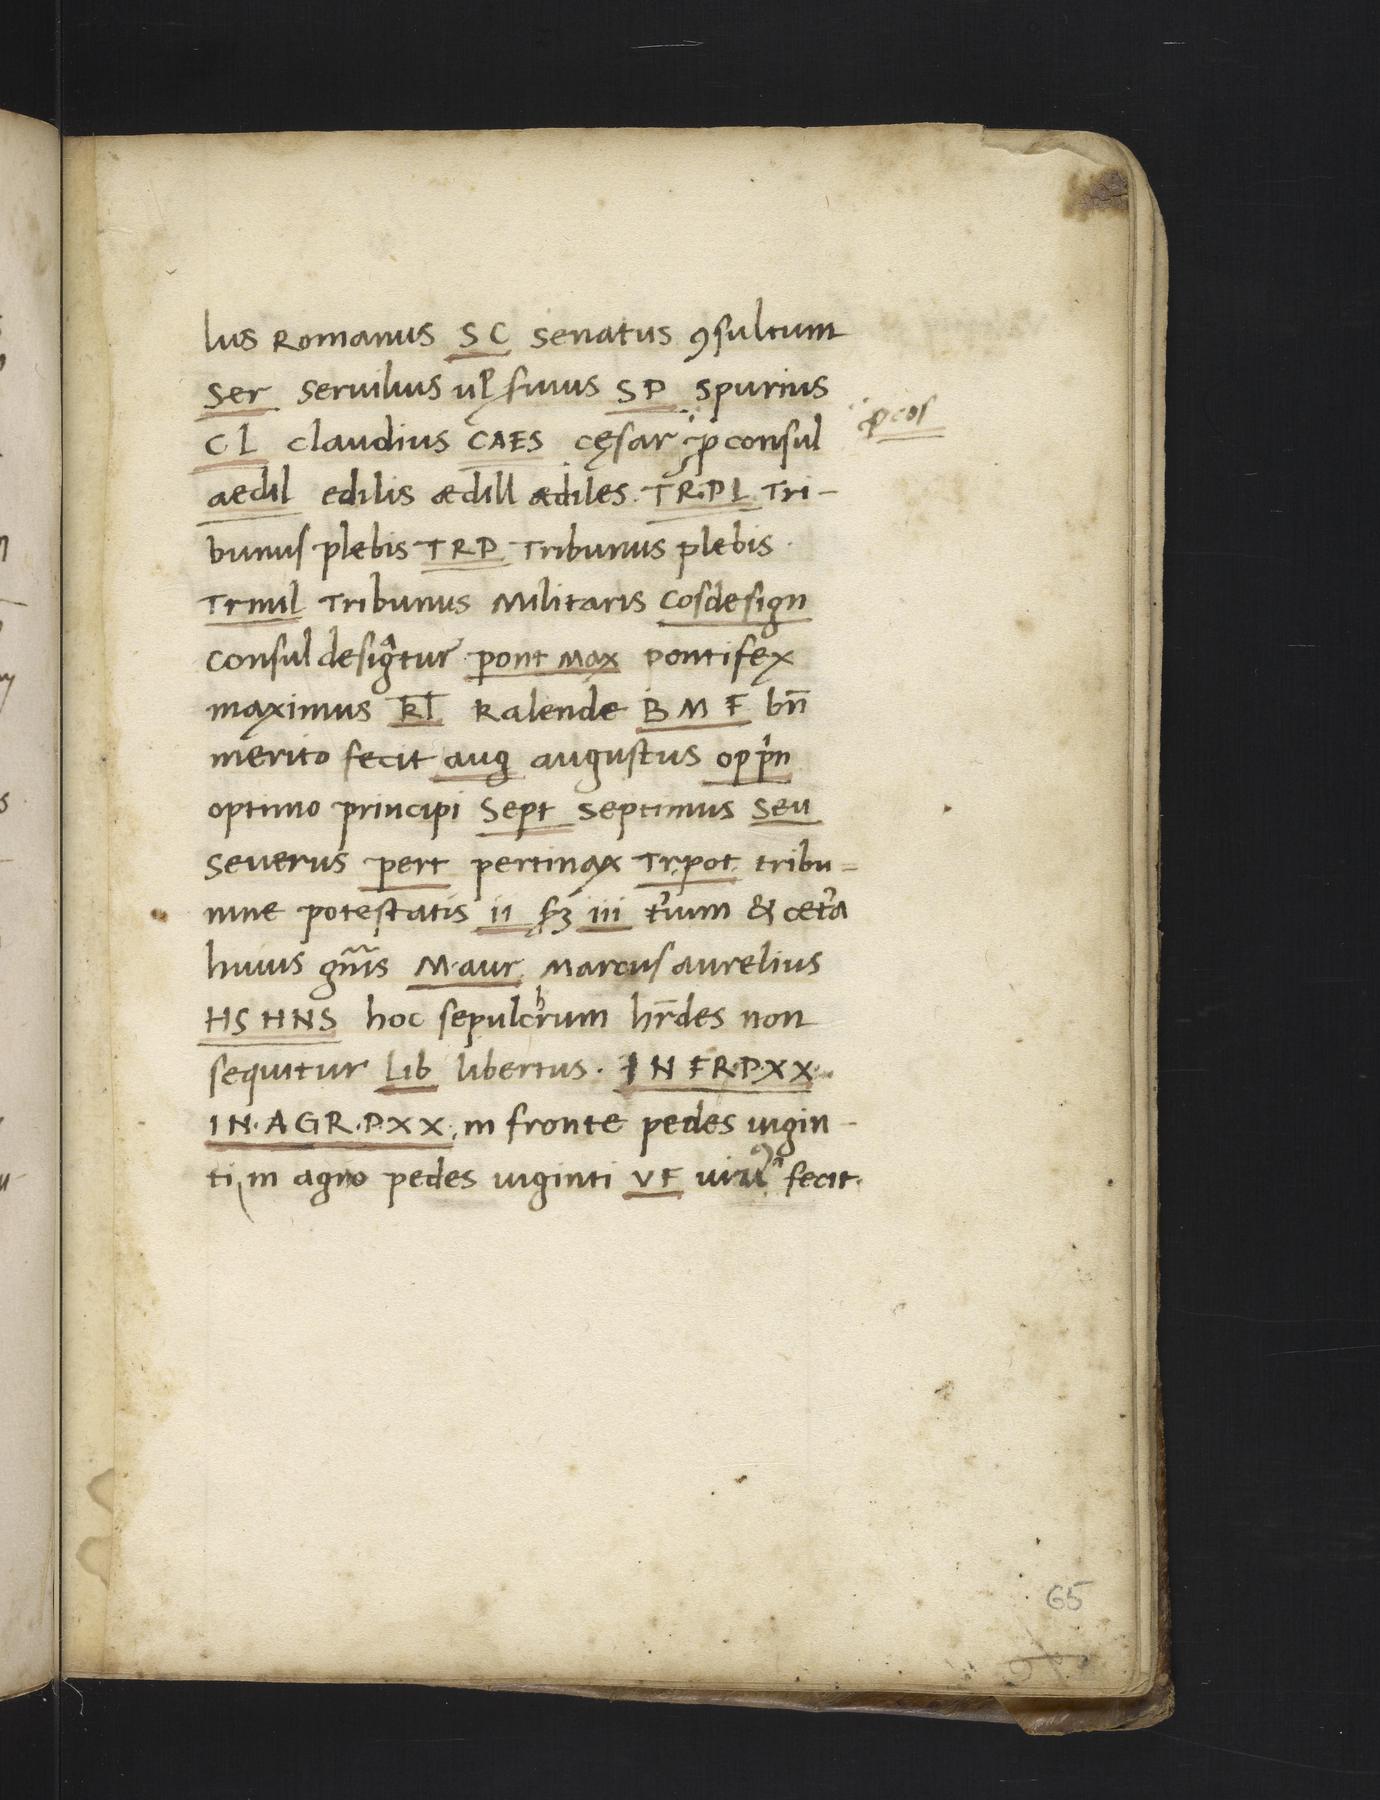 lus Romanus S C senatus ꝯsultum
Ser Seruilius ul̛ SP Spurius
ꝓcos
C L claudius CAES cęsar ꝓconsul
aedil edilis ædill ædiles. T R.P L Tri-
bunus plebis T R P Tribunus plebis.
Trmil Tribunus Militaris Cosdesign
Consul desigͣtur pont Max pontifex
maximus K̅l̅ Kalende B M F bn̅
merito fecit aug augustus op pͥn
optimo principi Sept septimus Seu
Seuerus pert pertinax Tr.pot. tribu=
nine potestatis ii iii t̛tium & cet̛a
huius gn̅is M.aur. Marcus aurelius
HS HNS hoc sepulcrum hr̅des non
sequitur Lib libertus. I N F R.P.X X.
I N. A G R. P. X X. in fronte pedes uigin-
ti in agro pedes uiginti V F fecit.
65